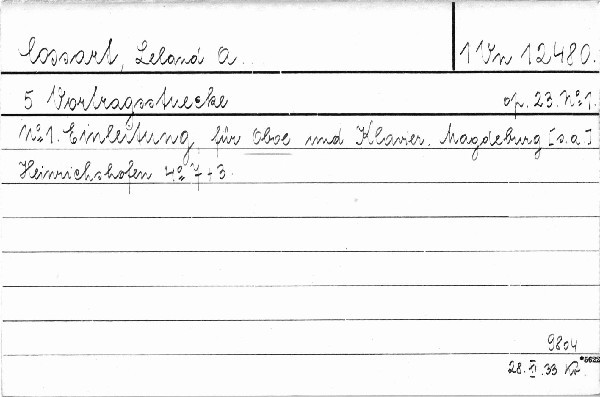 Cossart, Leland A.. 1 Vn 12480.
5 Vortragsstuecke op. 23. No 1.
No 1. Einleitung für Oboe und Klavier. Magdeburg [s.a.]
Heinrichshofen 4o 7+3.
9804
28. II. 33